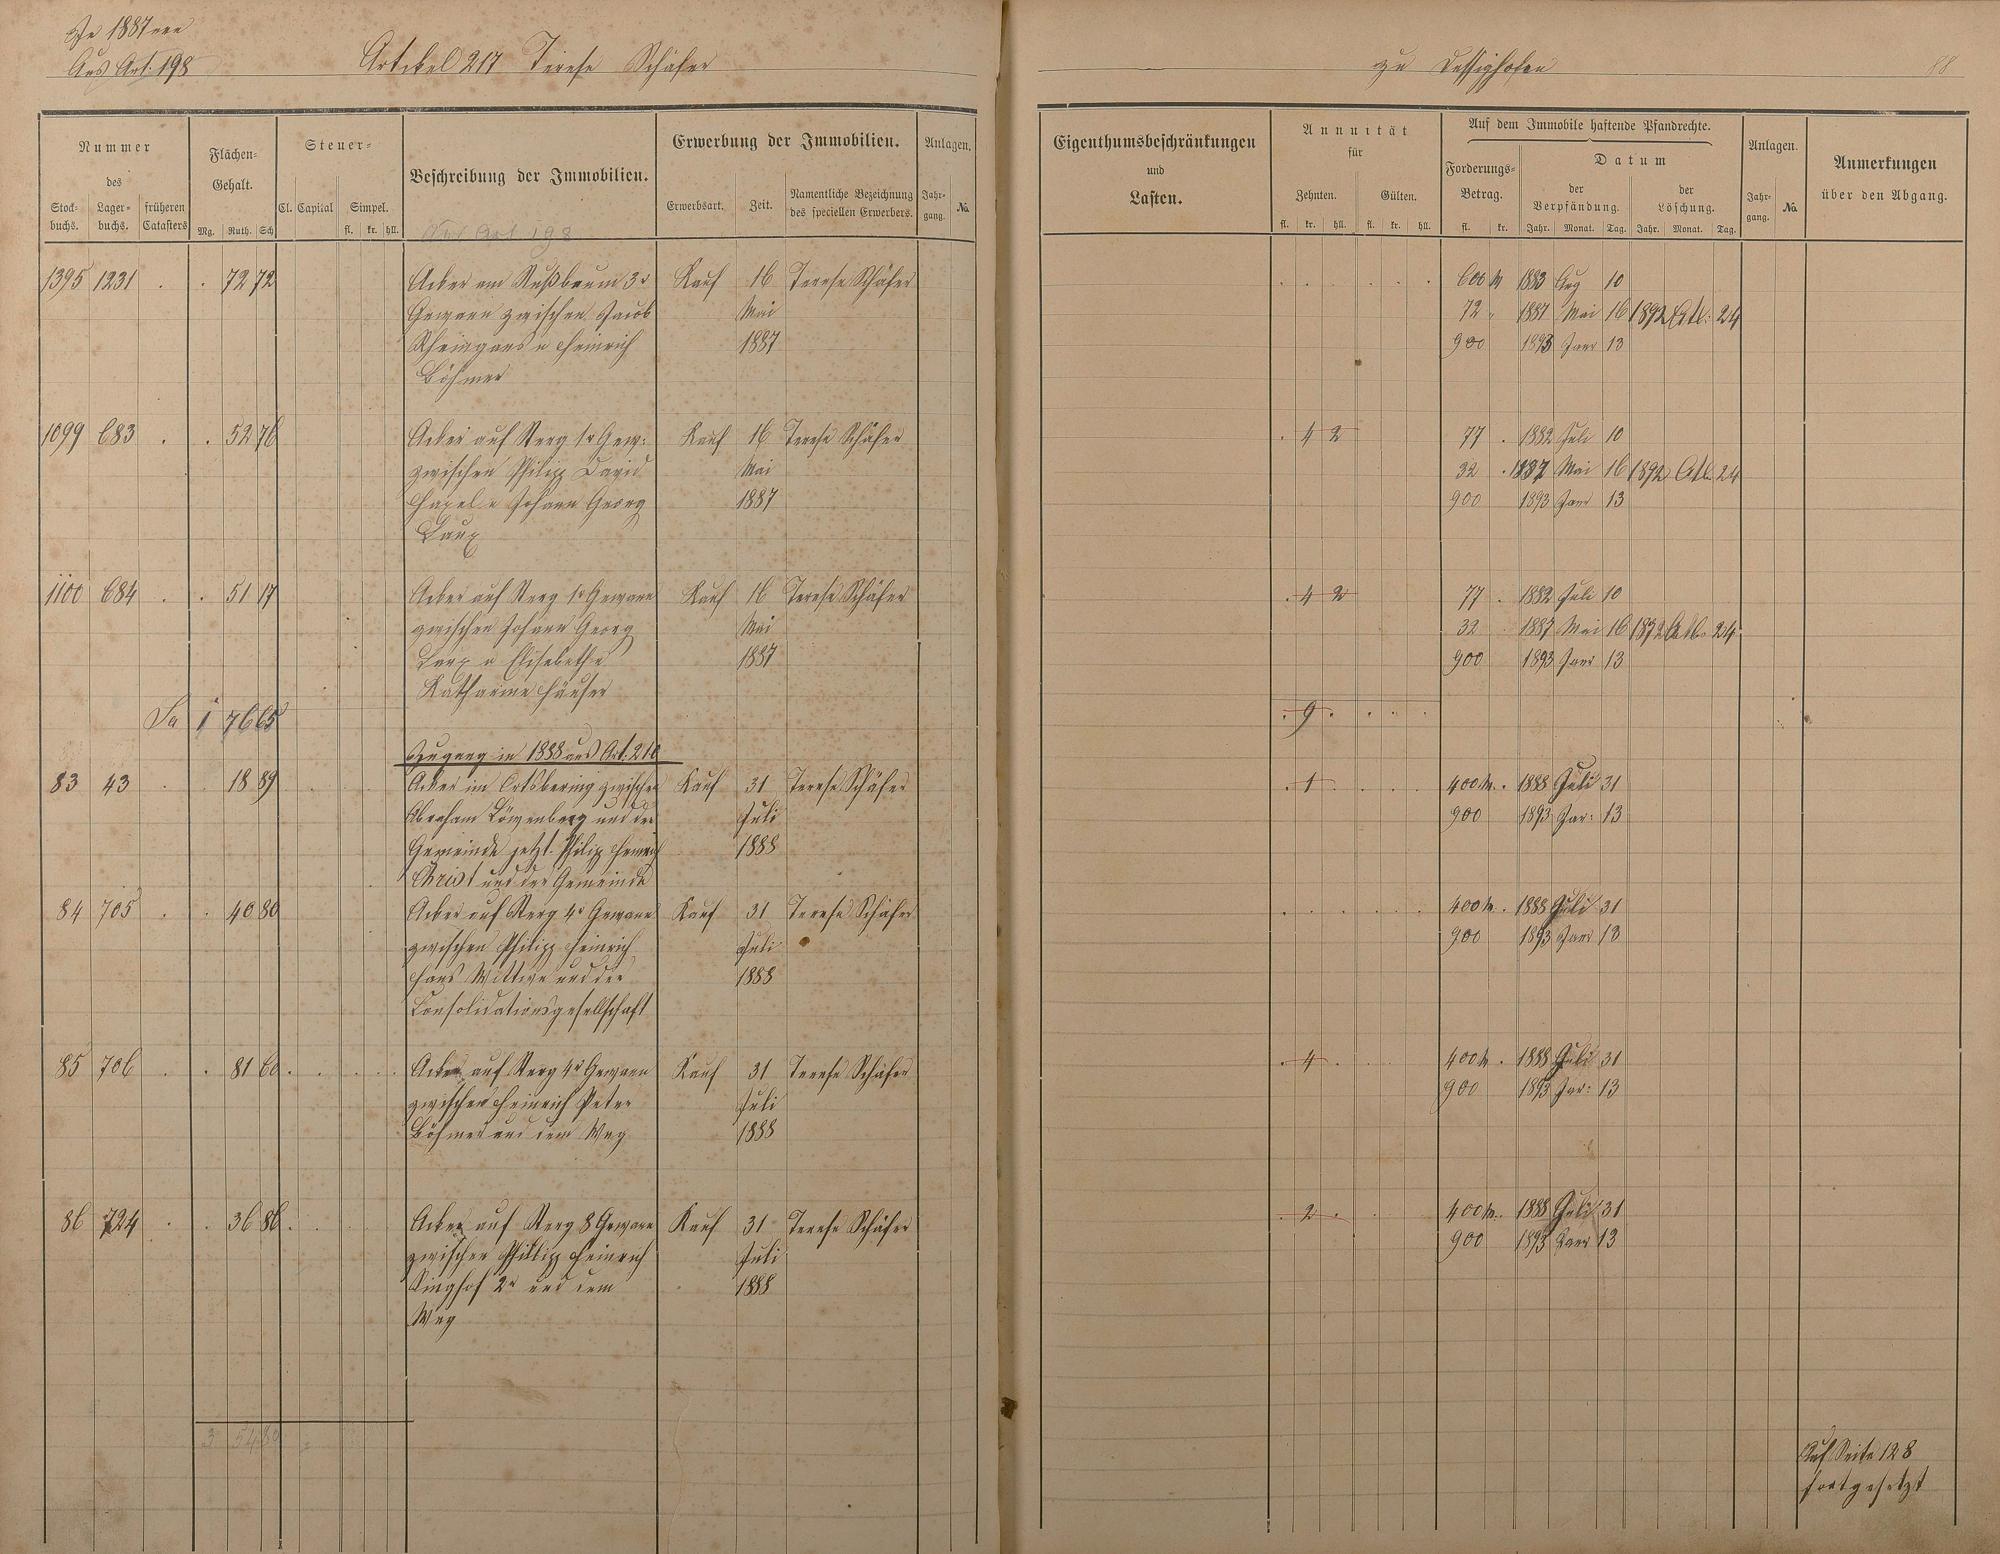 In 1887 neu
Aus Art. 198
Artikel 217 Terese Schäfer
zu Dessighofen
88
Nummer
des
Stock-
buchs.
Lager-
buchs.
früheren
Catasters
Flächen-
Gehalt.
Mg. Ruth. Sch
Steuer-
Cl. Capital Simpel.
fl. kr. hll.
Beschreibung der Immobilien.
Aus Art 198
Erwerbung der Immobilien.
Erwerbsart. Zeit.
Namentliche Bezeichnung
des speciellen Erwerbers.
Anlagen.
Jahr-
gang. No.
Eigenthumsbeschränkungen
und
Lasten.
Annuität
für
Zehnten. Gülten.
fl. kr. hll. fl. kr. hll.
Auf dem Immobile haftende Pfandrechte.
Forderungs-
Betrag.
fl. kr.
Datum
der
Verpfändung.
der
Löschung.
Jahr. Monat. Tag. Jahr. Monat. Tag.
Anlagen.
Jahr-
gang. No.
Anmerkungen
über den Abgang.
1395 1231 . . 72 72 Acker am Nußbaum 3r Kauf 16 Terese Schäfer 600 M 1883 Aug 10
Gewann zwischen Jacob Mai 72 " 1887 Mai 16 1892 24
Rheingans u Heinrich 1887 900 1893 Janr 13
Böhmer
1099 683 . . 52 76 Acker auf Kauf 16 Terese Schäfer . 4 2 77 . 1882 Juli 10
zwischen Philipp David Mai 32 . 1887 Mai 16 1892 24
u Johann Georg 1887 900 1893 Janr 13
Laux
1100 684 . . 51 17 Acker auf Gewann Kauf 16 Terese Schäfer . 4 2 77 . 1882 Juli 10
zwischen Johann Georg Mai 32 1887 Mai 16 1892 24
Laux u Elisabethe 1887 900 1893 Janr 13
Katharine Häuser
Sa 1 76 65 . 9 .
Zugang in 1888 aus Art. 210
83 43 . . 18 89 Acker im Ortsbering zwischen Kauf 31 Terese Schäfer . 1 400 M. 1888 Juli 31
Abraham Löwenberg und der Juli 900 1893 Jar: 13
Gemeinde jetzt Philipp Heinrich 1888
Christ und der Gemeinde
84 705 . . 40 80 Acker auf 4r Gewann Kauf 31 Terese Schäfer 400 M. 1888 Juli 31
zwischen Philipp Heinrich Juli 900 1893 Janr 13
Wittwe und der 1888
Consolidationsgesellschaft
85 706 . . 81 60 Acker auf 4r Gewann Kauf 31 Terese Schäfer . 4 . 400 M . 1888 Juli 31
zwischen Heinrich Peter Juli 900 1893 Jar: 13
Böhmer und dem Weg 1888
86 724 . . 36 86 Acker auf 8 Gewann Kauf 31 Terese Schäfer . 2 . 400 M. 1888 Juli 31
zwischen Phillipp Heinrich Juli 900 1893 Janr 13
Singhof 2r und dem 1888
Weg
3 54 80
Auf Seite 128
fortgesetzt